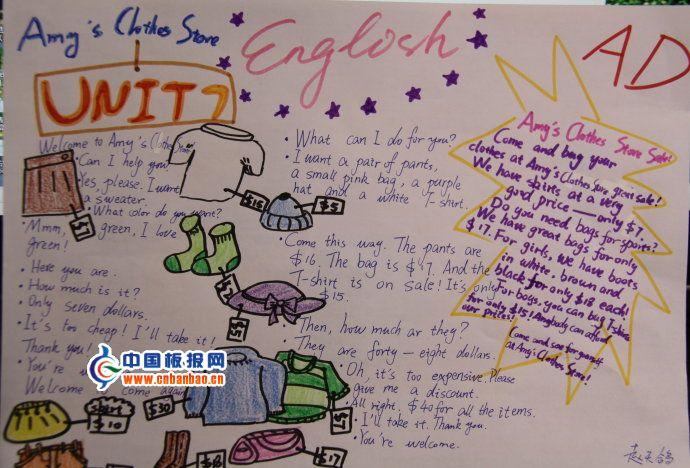 Amy's Clothes Store
Englosh
AD
UNIT7
Welcome to Amy's Clothes Store
Can I help you
Yes, please. I want
a sweater.
What color do you want?
Mmm, green, I love
green!
Here you are.
How much is it?
Only seven dollars.
It's too cheap! I'll take it!
Thank you!
You're
Welcome to come again
$7
$15
$5
$2
$30
skirt
$10
$18
$17
What can I do for you?
I want a pair of pants,
a small pink bag, a purple
hat and a white T-shirt.
Come this way. The pants are
$16. The bag is $17. And the
T-shirt is on sale! It's only
$15.
Then, how much ar they?
They are forty-eight dollars.
Oh, it's too expensive. Please
give me a discount.
All right. $40 for all the items.
I'll take it. Thank you.
You're welcome.
Amy's Clothes Store Sale!
Come and buy your
clothes at Amy's Clothes Store great sale!
We have shirts at a very
good price — only $7.
Do you need bags for sports?
We have great bags for only
$17. For girls, We have boots
in white, brown and
black for only $18 each!
For boys, you can buy T-shirts
for only $15! Anybody can afford
our prices!
Come and see for yourself
at Amy's Clothes Store!
中国板报网
www.cnbanbao.cn